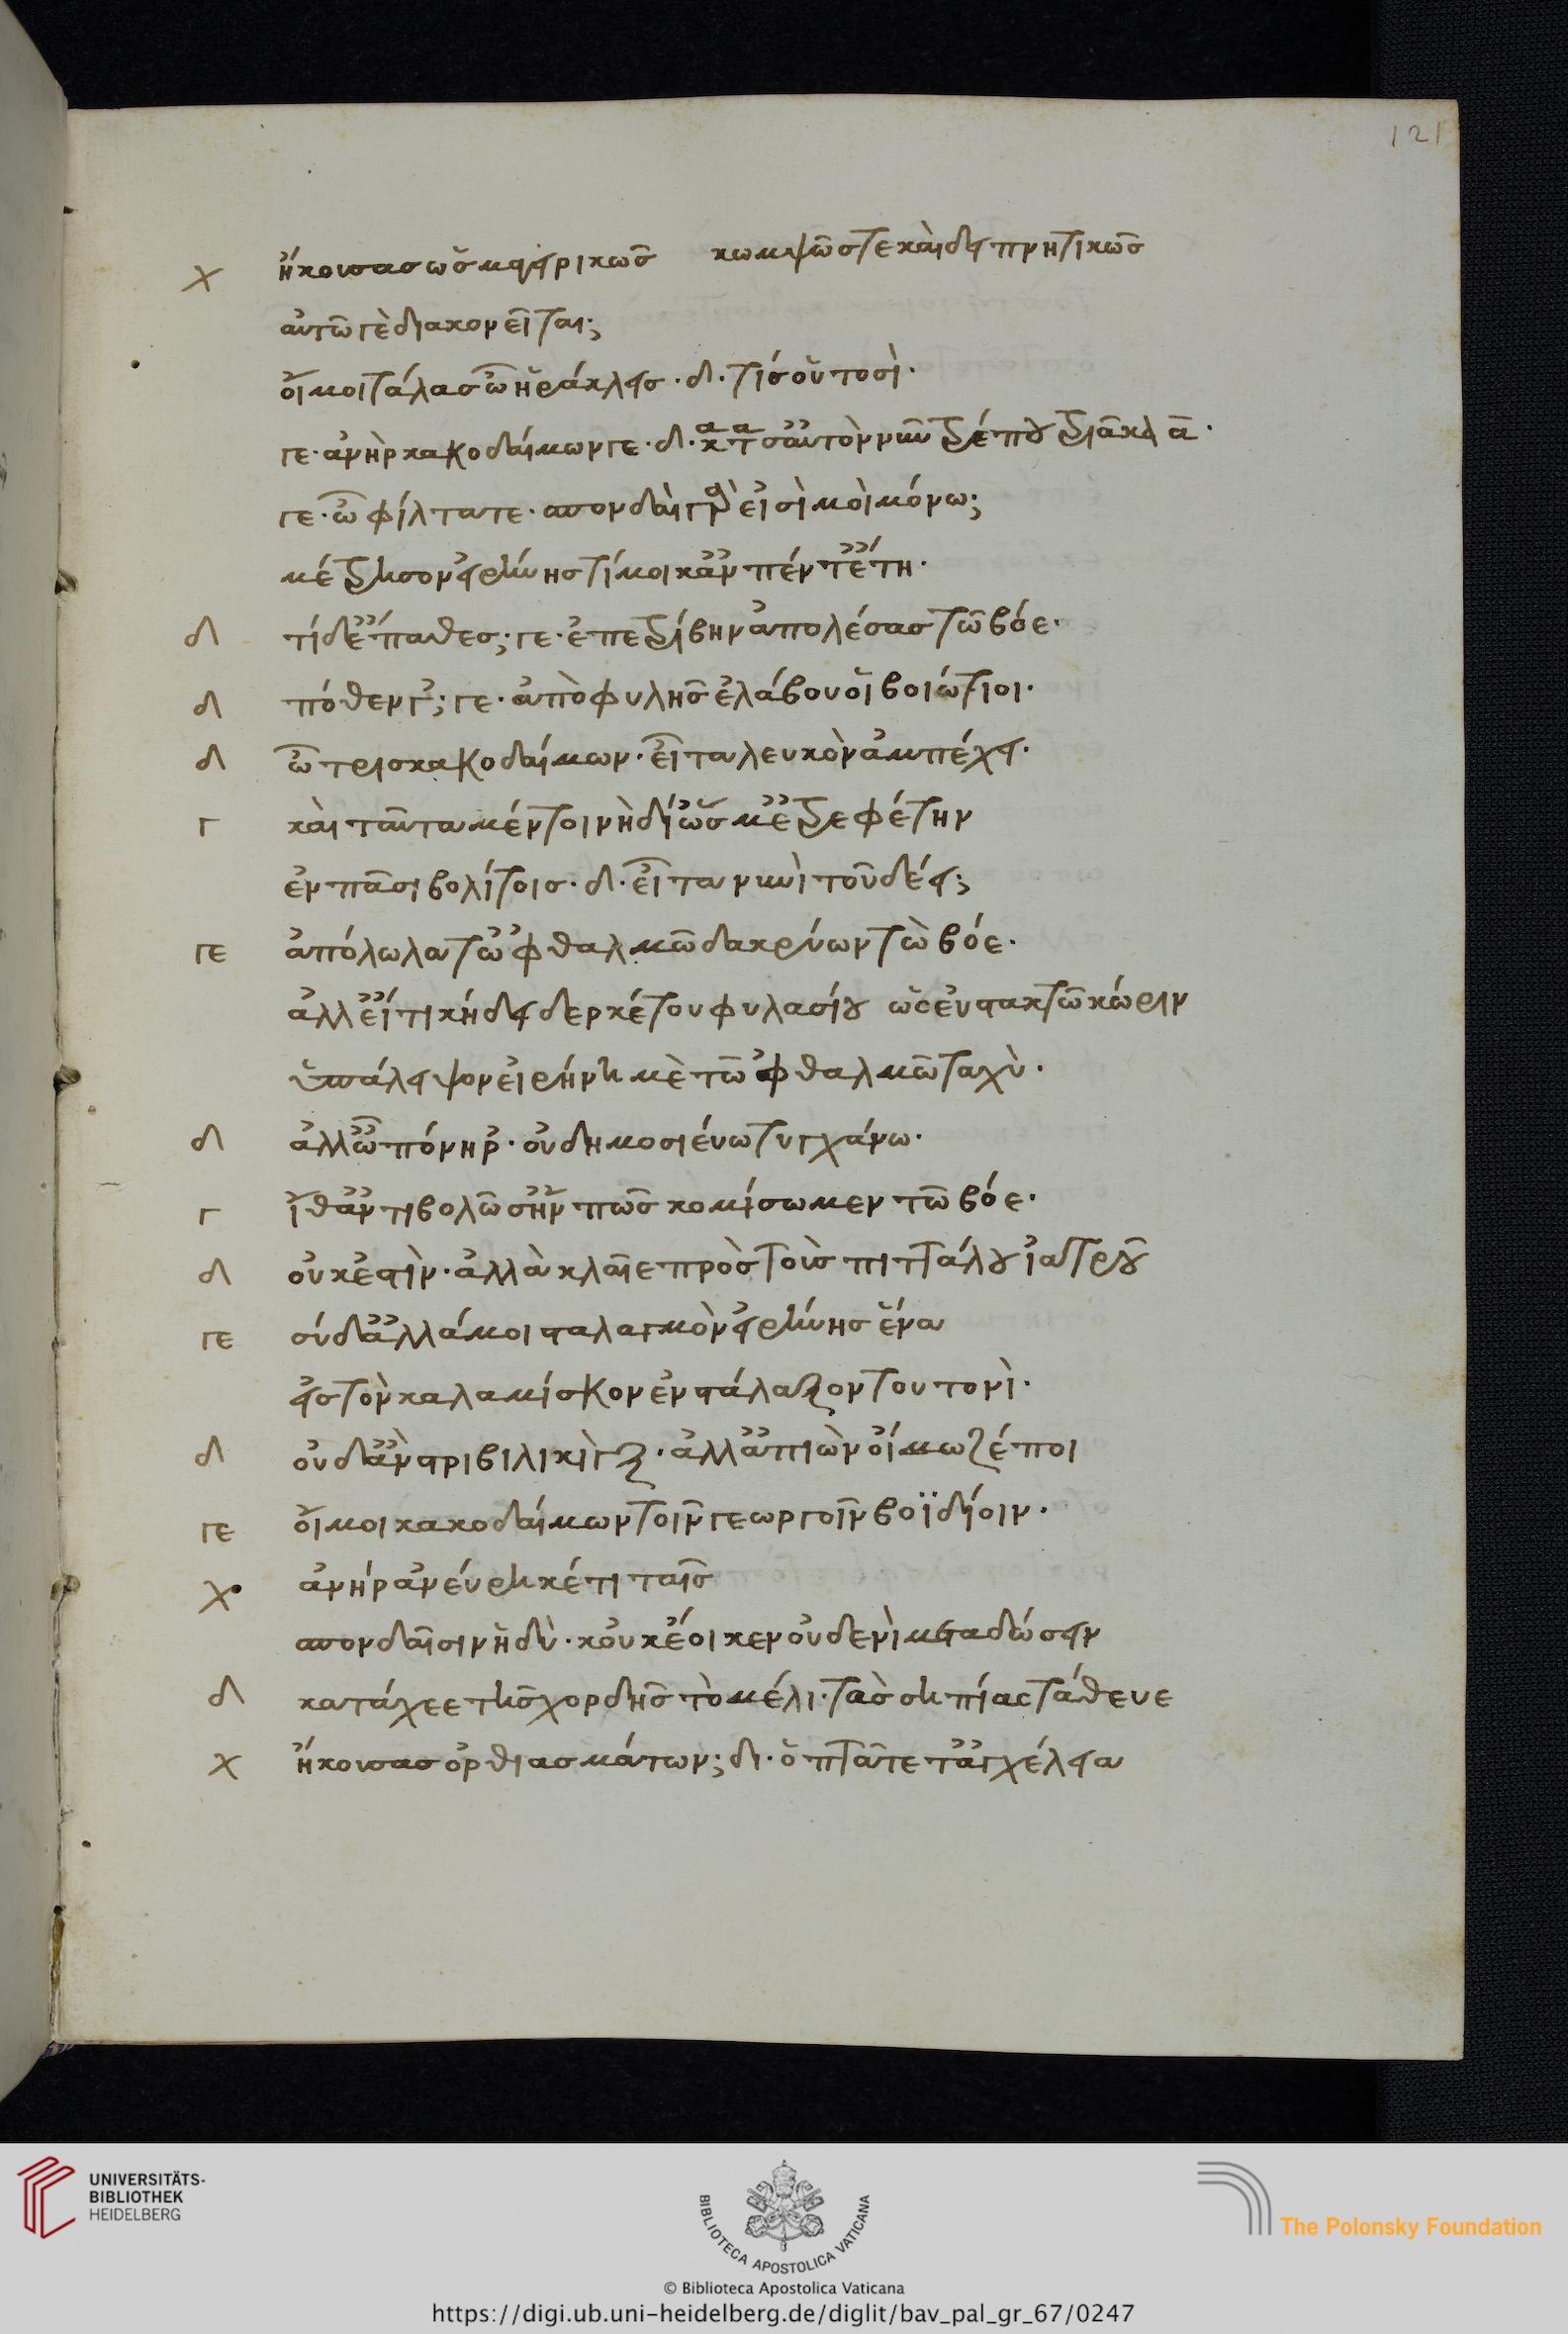 121
χ ἤκουσας ὡς μαγειρικῶς κωμψῶς τε καὶ δειπνητικῶς
αὐτῶ γὲ διακονεῖται;
οἴμοι τάλας ὦ ἡράκλεις. δ. τίς οὑτοσὶ.
γε. ἀνὴρ κακοδαίμων γε. δ. κατὰ σαὐτὸν νῦν τρέπου
γε. ὦ φίλτατε. σπονδαὶ γὰρ εἰσὶ μοὶ μόνω;
μέτρησον εἰρήνης τί μοι κἂν πέντ᾽ ἔτη.
δ τί δ᾽ ἔπαθες; γε. ἐπετρίβην ἀπολέσας τῶ βόε.
δ πόθεν γ᾽; γε. ἀπὸ φυλῆς ἔλαβον οἱ βοιώτιοι.
δ ὦ τρισκακοδαίμων. εἶτα λευκὸν ἀμπέχει.
γ καὶ ταῦτα μέντοι νὴ δί᾽ ὥς μ᾽ ἐτρεφέτην
ἐν πᾶσι βολίτοις. δ. εἶτα νυνὶ τοῦ δέει;
γε ἀπόλωλα τὠφθαλμῶ δακρύων τὼ βόε.
ἀλλ᾽ εἴ τι κήδει δερκέτου φυλασίου ὡς ἐν στακτῶ κώριν
ὑπάλειψον εἰρήνη μὲ τὠφθαλμῶ ταχὺ.
δ ἀλλ᾽ ὦ πόνηρ᾽. οὐ δημοσιεύω τυγχάνω.
γ ἴθ᾽ ἀντιβολῶ σ᾽ ἤν πως κομίσωμεν τῶ βόε.
δ οὐκ ἔστιν. ἀλλὰ κλαῖε πρὸς τοὺς πιττάλου ἰατροῦ
γε σύ δ᾽ ἀλλά μοι σταλαγμὸν εἰρήνης ἕνα
εἰς τὸν καλαμίσκον ἐνστάλαξον τουτονὶ.
δ οὐδ᾽ ἂν στριβιλικὶγξ. ἀλλ᾽ ἀπιὼν οἴμωζέ ποι
γε οἴμοι κακοδαίμων τοῖν γεωργοῖν βοϊδίοιν.
χ ἀνήρ ἀνεύρηκέ τι ταῖς
σπονδαῖσιν ἡδὺ. κοὐκ ἔοικεν οὐδενὶ μεταδώσειν
δ κατάχεε τῆς χορδῆς τὸ μέλι. τὰς σηπίας στάθευε
χ ἤκουσας ὀρθιασμάτων; δι. ὀπτᾶτε τἀγχέλεια
UNIVERSITÄTS-
BIBLIOTHEK
HEIDELBERG
BIBLIOTECA APOSTOLICA VATICANA
The Polonsky Foundation
© Biblioteca Apostolica Vaticana
https://digi.ub.uni-heidelberg.de/diglit/bav_pal_gr_67/0247